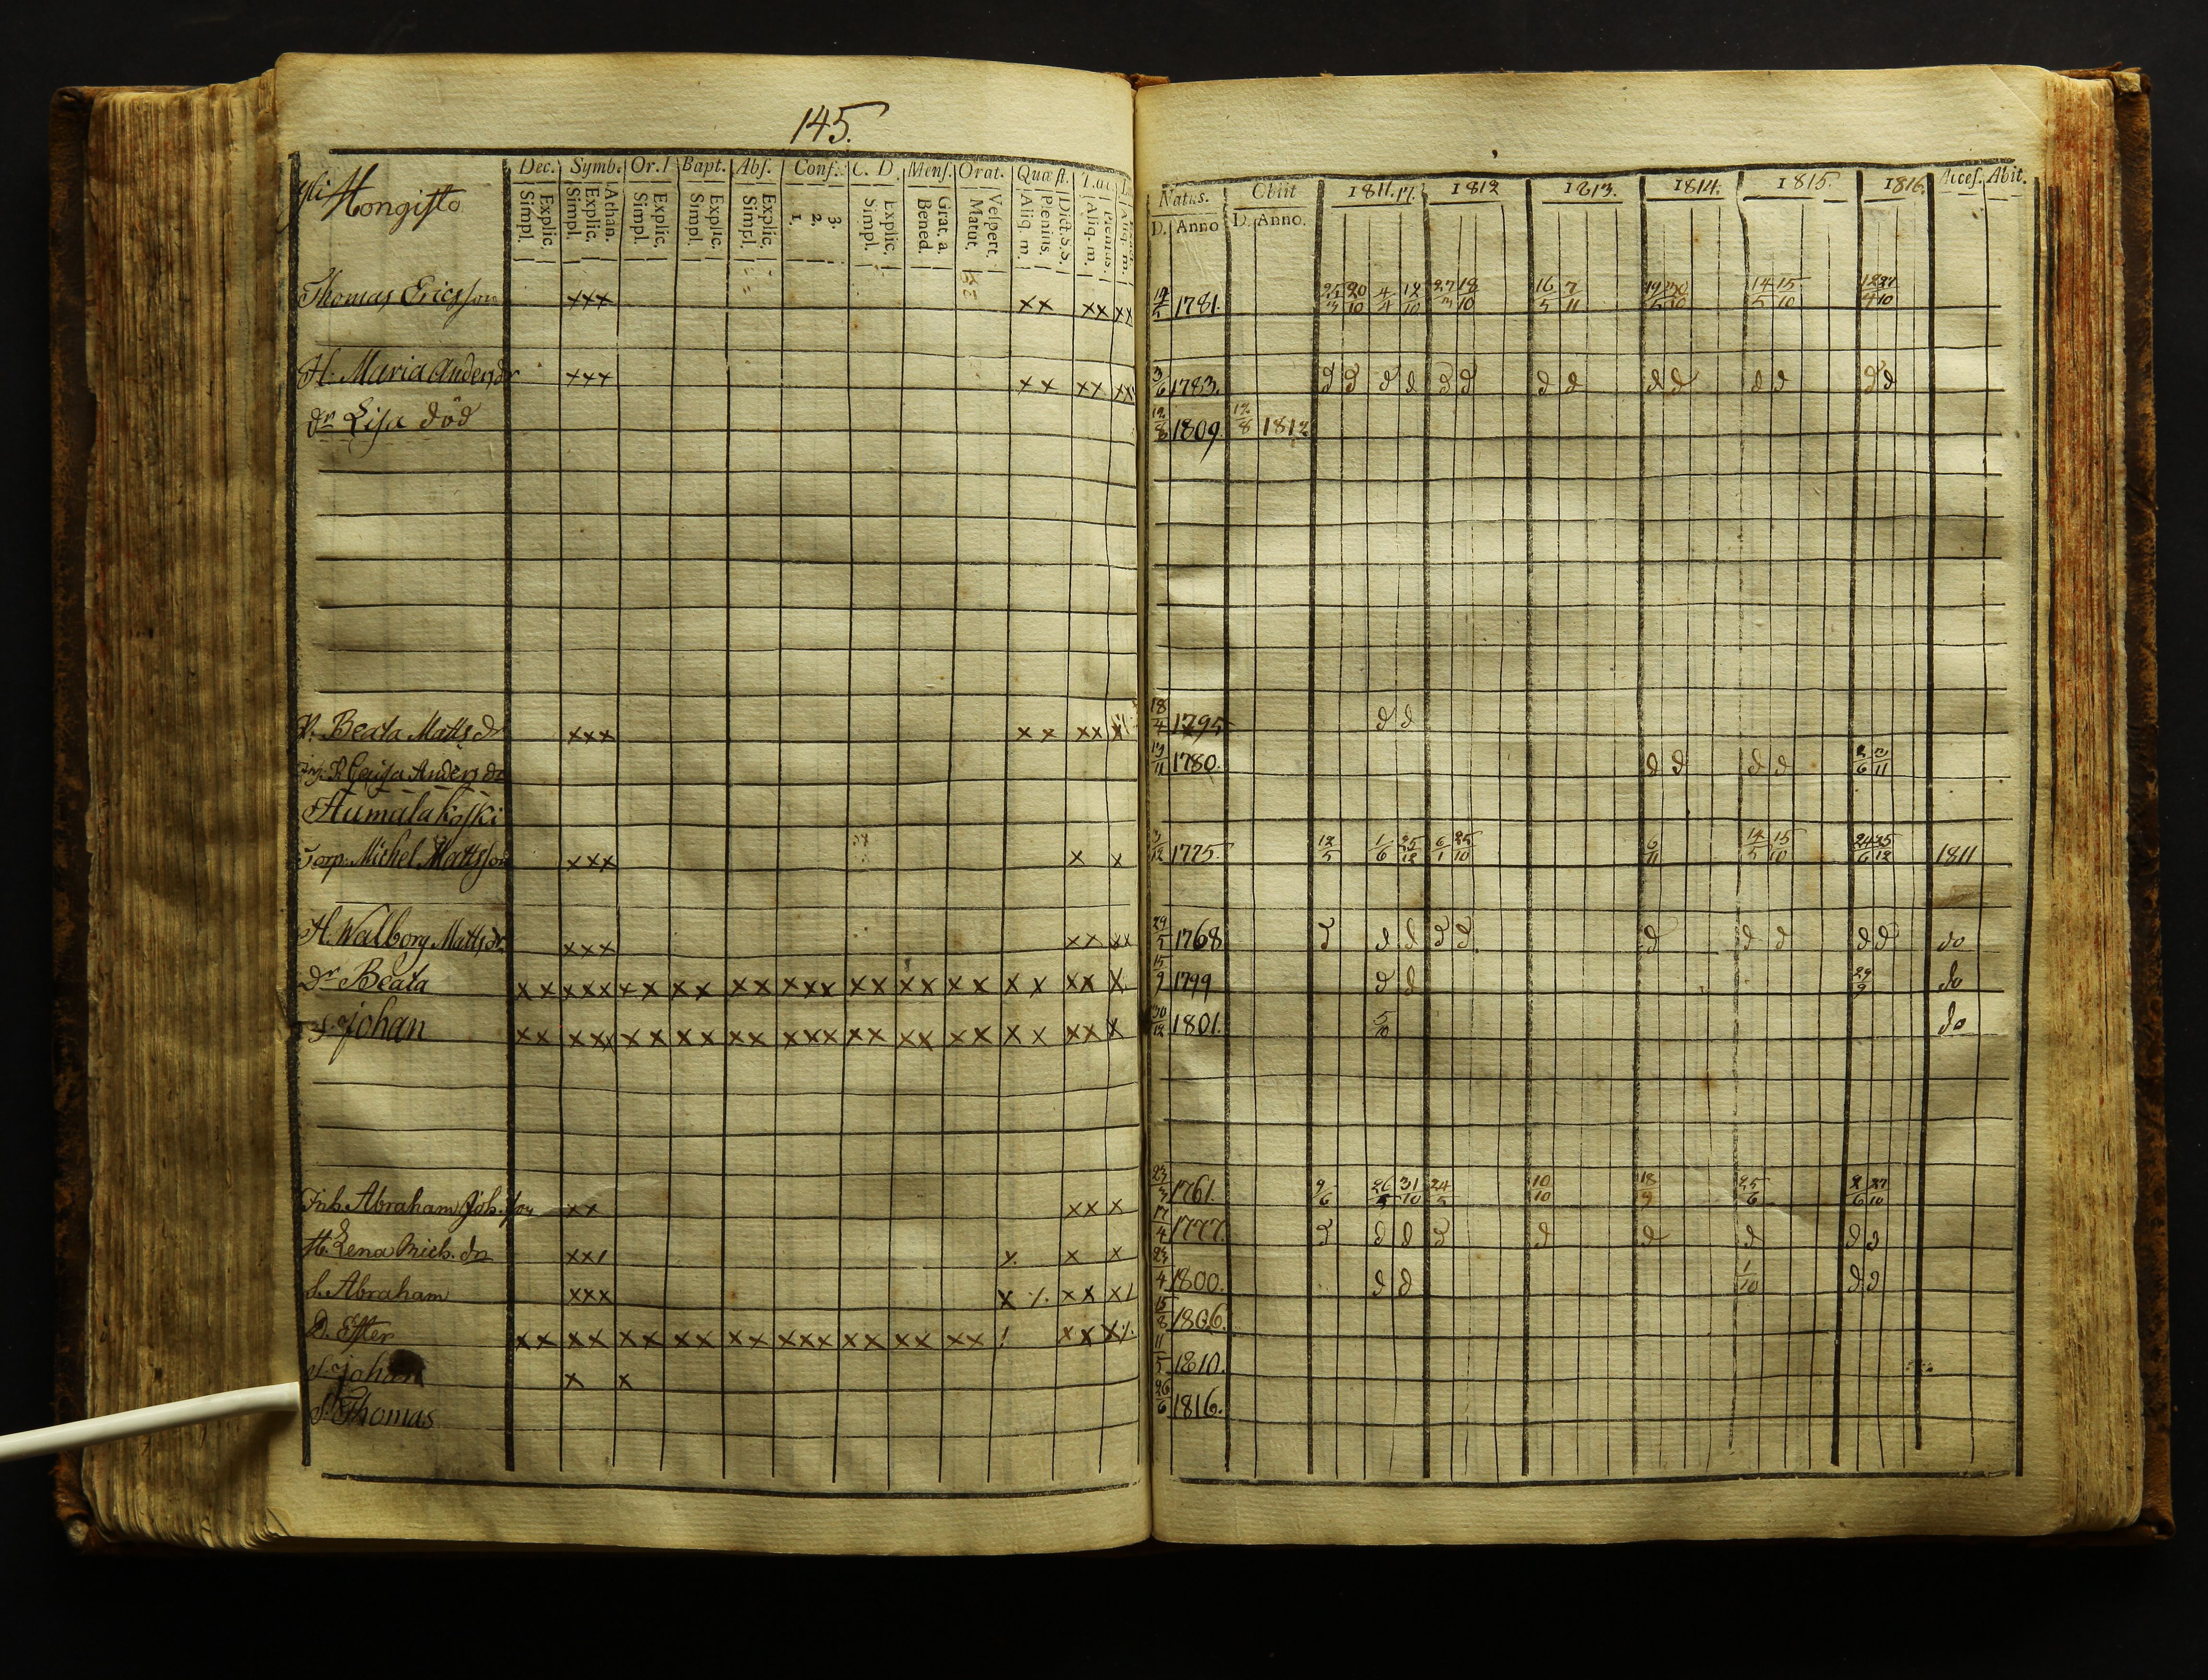 145.
Yli Hongisto
Dec. Symb. Or. Bapt. Abs. Conf. C. D. Mens. Orat. Quæst.
Simpl. Explic. Simpl. Explic. Athan. Simpl. Explic. Simpl. Explic. Simpl. Explic. 1. 2. 3. Simpl. Explic. Bened. Grat. a. Matut. Vespert. Aliq. m. Plenius. Dict. S. S. Aliq. m.
Natus. Obiit 1811. 17. 1812 1813. 1814. 1815. 1816. Acces. Abit.
D. Anno D. Anno.
Thomas Ericsson xxx xx xx xx 1781. 20/10 4/4 12/10 18/10 16/5 7/11 14/5 15/10
H. Maria Andersdr xxx xx xx xx 3/6 1783. d d d d d d d d d d d d d d
dr Lisa död 12/8 1809. 12/8 1812
P. Beata Matts dr xxx xx xx 18/4 1795 d d
P. Caisa Anders dr 1780. d d d d
Humalakoski
Torp. Michel Mattsson xxx x x 1775. 12/5 1/6 25/12 6/1 25/10 6/11 14/5 15/10 24/6 25/12 1811
H. Walborg Mattsdr. xxx xx xx 29/5 1768 d d d d d d d d d d do
Dr Beata xx xxx xx xx xx xxx xx xx xx xx xx x 15/9 1799 d d 29/9 do
S. Johan xx xxx xx xx xx xxx xx xx xx xx xx x 30/12 1801. 5/10 do
Inh. Abraham Joh.son xx xx x 23/3 1761. 9/6 26/5 31/10 24/5 10/10 18/9 25/6 2/6 27/10
H. Lena Mich. dr xx/ x x x 17/4 1777. d d d d d d d d d
S. Abraham xxx x ·/. xx x/ 23/4 1800. d d 1/10 d d
D. Ester xx xx xx xx xx xxx xx xx xx / xx x/. 15/8 1806.
S. Johan x x 11/5 1810.
S. Thomas 26/6 1816.